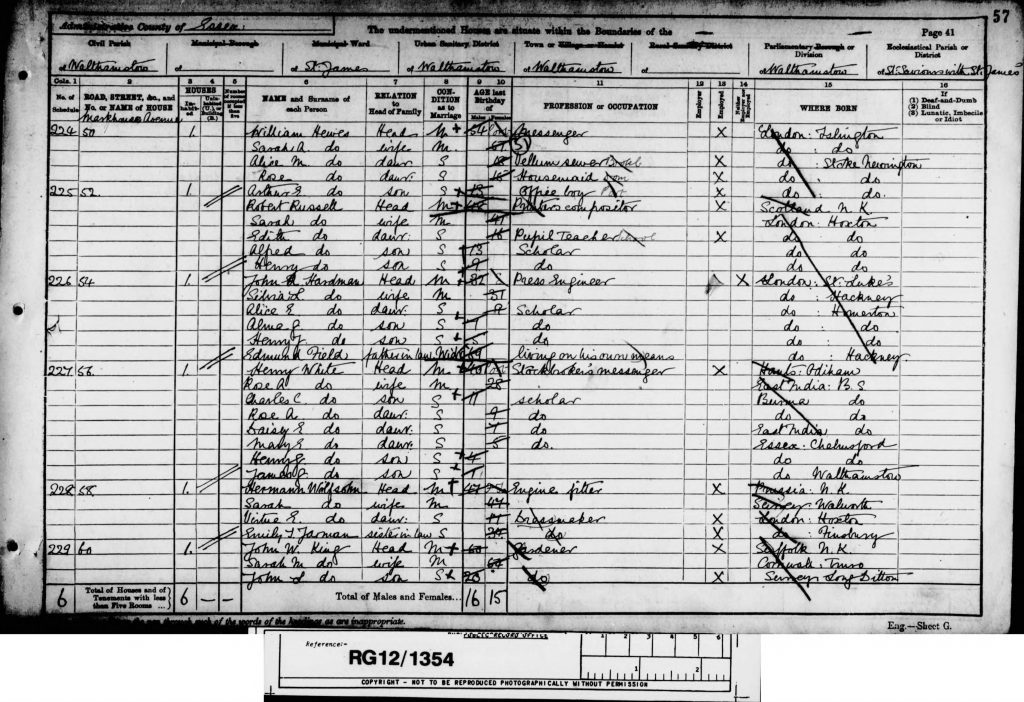 57
Administrative County of Essex
The undermentioned Houses are situate within the Boundaries of the
Page 41
Civil Parish
Municipal Borough
Municipal Ward
Urban Sanitary District
Town or Village or Hamlet
Rural Sanitary District
Parliamentary Borough or Division
Ecclesiastical Parish or District
of Walthamstow
of
of St. James
of Walthamstow
of Walthamstow
of
of Walthamstow
of St. Saviours with St. James
Cols. 1 2 3 4 5 6 7 8 9 10 11 12 13 14 15 16
No. of Schedule
ROAD, STREET, &c., and No. or NAME of HOUSE
HOUSES
NAME and Surname of each Person
RELATION to Head of Family
CONDITION as to Marriage
AGE last Birthday of
Males Females
PROFESSION or OCCUPATION
Employer
Employed
WHERE BORN
If
(1) Deaf-and-Dumb
(2) Blind
(3) Lunatic, Imbecile or Idiot
Markhouse Avenue
224 50 1 William Hewes Head M 54 Messenger X London: Islington
Sarah A. do wife M do : do
Alice M. do daur. S 18 Vellum sewer X do : Stoke Newington
Rose do daur. S Housemaid X do : do
Arthur E. do son S 13 Office boy X do : do
225 52 1 Robert Russell Head M Printers compositor X Scotland N.K.
Sarah do wife M 41 London: Hoxton
Edith do daur. S 16 Pupil Teacher do do
Alfred do son S 13 Scholar do do
Henry do son S 9 do do do
226 54 1. Hardman Head M Press Engineer X London: St. Luke's
Silvia L. do wife M 31 do : Hackney
Alice E do daur. S 9 Scholar do : Homerton
do son S 7 do do : do
Henry J. do son S 5 do do : do
Edmund Field father in law Widr 69 living on his own means do : Hackney
227 56 1. Henry White Head M 40 Stockbroker's messenger X Hants: Odiham
Rose A. do wife M 28 East India: B.S
Charles C. do son S 11 scholar Burma do
Rose A. do daur. S 9 do do do
Daisy E do daur. S 7 do East India do
Mary E do daur. S 5 do. Essex: Chelmsford
Henry do son S 4 do do
James do son S 1 do Walthamstow
228 58 1. Hermann Wolfsohn Head M 47 Engine fitter X Prussia: N.K.
Sarah do wife M 47 Surrey Walworth
Virtue E. do daur. S 17 Dressmaker X London: Hoxton
Emily Jarman sister in law S do X do : Finsbury
229 60 1. John W. King Head M 60 Gardener X Suffolk N.K.
Sarah M. do wife M 64 Cornwall: Truro
John do son S 20 do X Surrey Long Ditton
6 Total of Houses and of Tenements with less than Five Rooms ... 6 – – Total of Males and Females... 16 15
of the words of the headings as are inappropriate.
Eng.—Sheet G.
PUBLIC RECORD OFFICE
1 2 3 4 5 6
Reference:-
RG12/1354
1 2
COPYRIGHT - NOT TO BE REPRODUCED PHOTOGRAPHICALLY WITHOUT PERMISSION